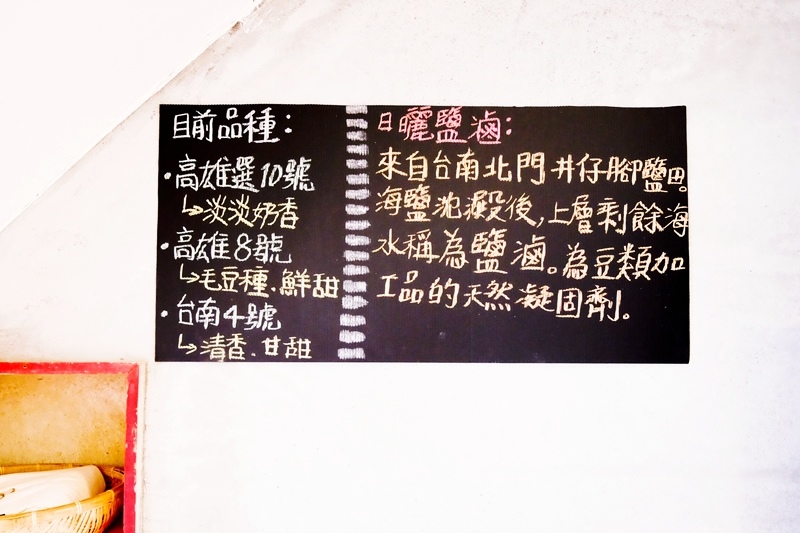 目前品種：
・高雄選10號
↳淡淡奶香
・高雄8號
↳毛豆種、鮮甜
・台南4號
↳清香、甘甜
日曬鹽滷：
來自台南北門井仔腳鹽田。
海鹽沈澱後,上層剩餘海
水稱為鹽滷。為豆類加
工品的天然凝固劑。